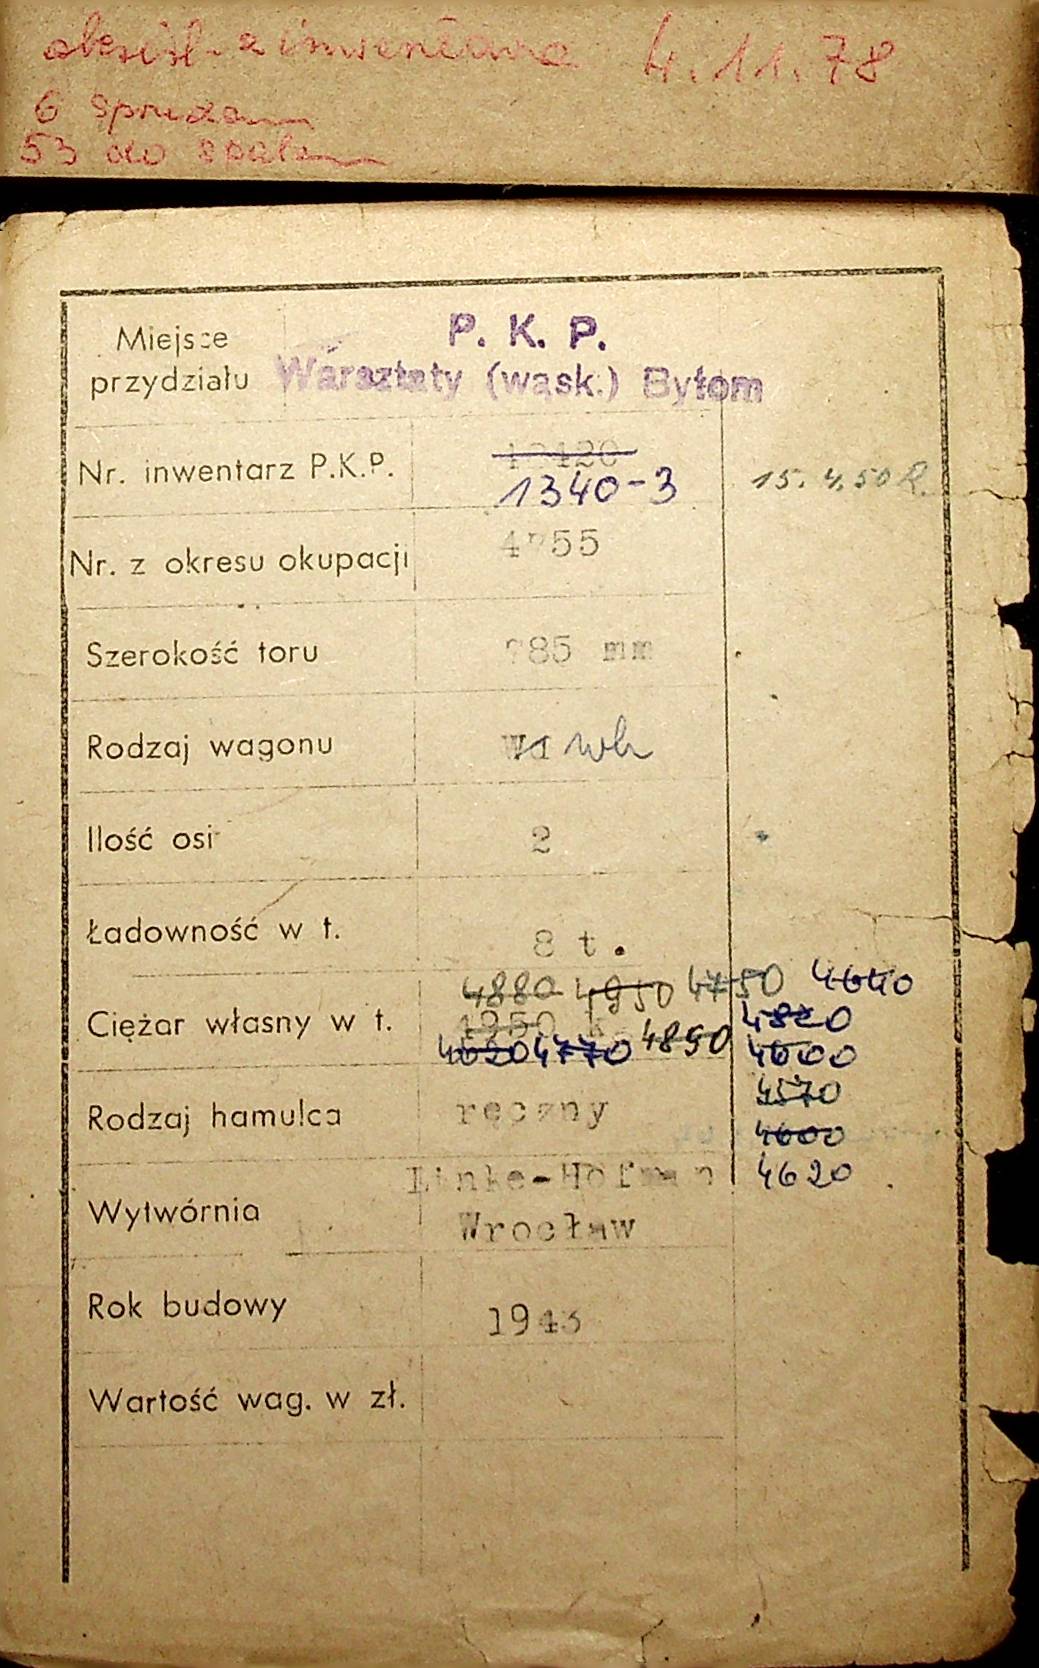 skreśl. z inwentarza 4.11.78
6 sprzedan
53 do spalen
Miejsce P. K. P.
przydziału Warsztaty (wąsk.) Bytom
Nr. inwentarz P.K.P. 1340-3 15.4.50 R.
Nr. z okresu okupacji 4755
Szerokość toru 785 mm
Rodzaj wagonu Wd Wh
Ilość osi 2
Ładowność w t. 8 t.
4880 4950 4750 4640
Ciężar własny w t. 4820
4620 4770 4890 4600
4570
Rodzaj hamulca ręczny
4600
Linke-Hofman 4620
Wytwórnia
Wrocław
Rok budowy 1943
Wartość wag. w zł.